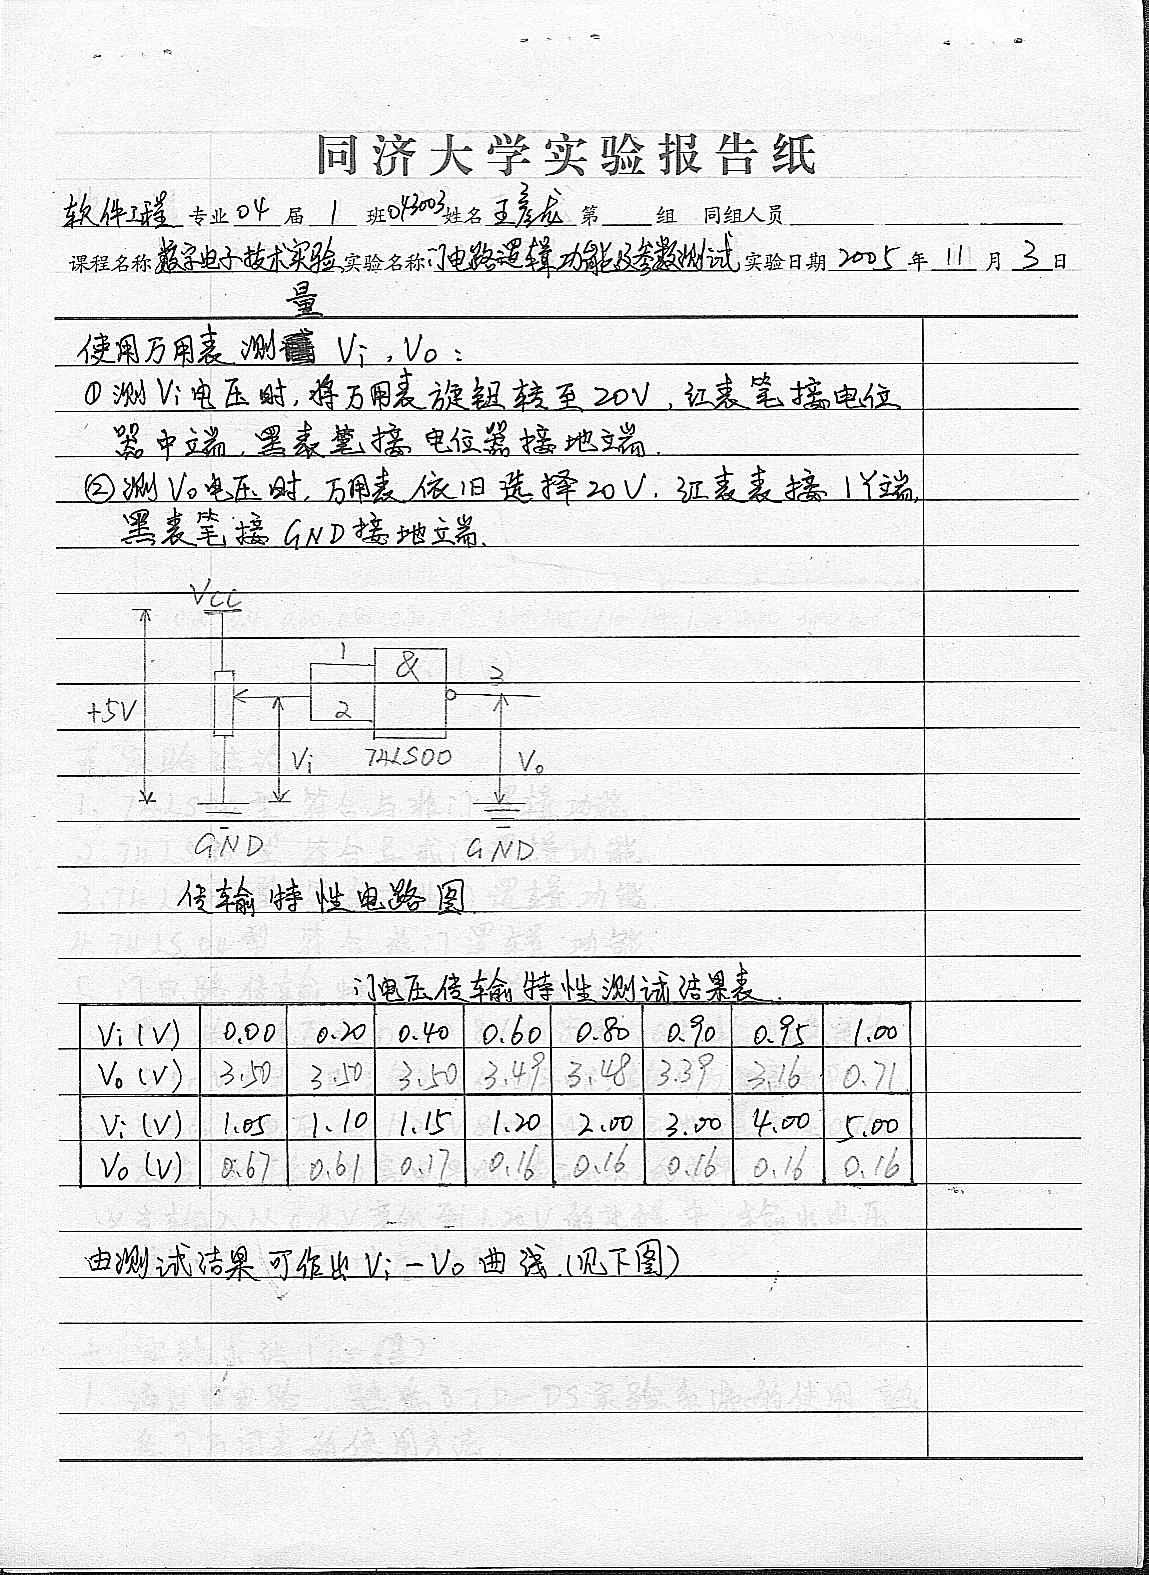 同济大学实验报告纸
软件工程 专业 04 届 1 班 043003 姓名 王彦龙 第 组 同组人员
课程名称 数字电子技术实验 实验名称 门电路逻辑功能及参数测试 实验日期 2005 年 11 月 3 日
使用万用表测量 Vi, Vo:
①测Vi电压时,将万用表旋钮转至20V,红表笔接电位
器中端,黑表笔接电位器接地端.
②测Vo电压时,万用表依旧选择20V.红表表接1Y端,
黑表笔接GND接地端.
VCC
+5V
1
2
&
3
74LS00
Vi
Vo
GND
GND
传输特性电路图.
门电压传输特性测试结果表.
Vi (V) 0.00 0.20 0.40 0.60 0.80 0.90 0.95 1.00
Vo (V) 3.50 3.50 3.50 3.49 3.48 3.39 3.16 0.71
Vi (V) 1.05 1.10 1.15 1.20 2.00 3.00 4.00 5.00
Vo (V) 0.67 0.61 0.17 0.16 0.16 0.16 0.16 0.16
由测试结果可作出Vi-Vo曲线.(见下图)